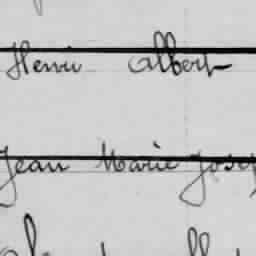 Henri Albert
Jean Marie Josep